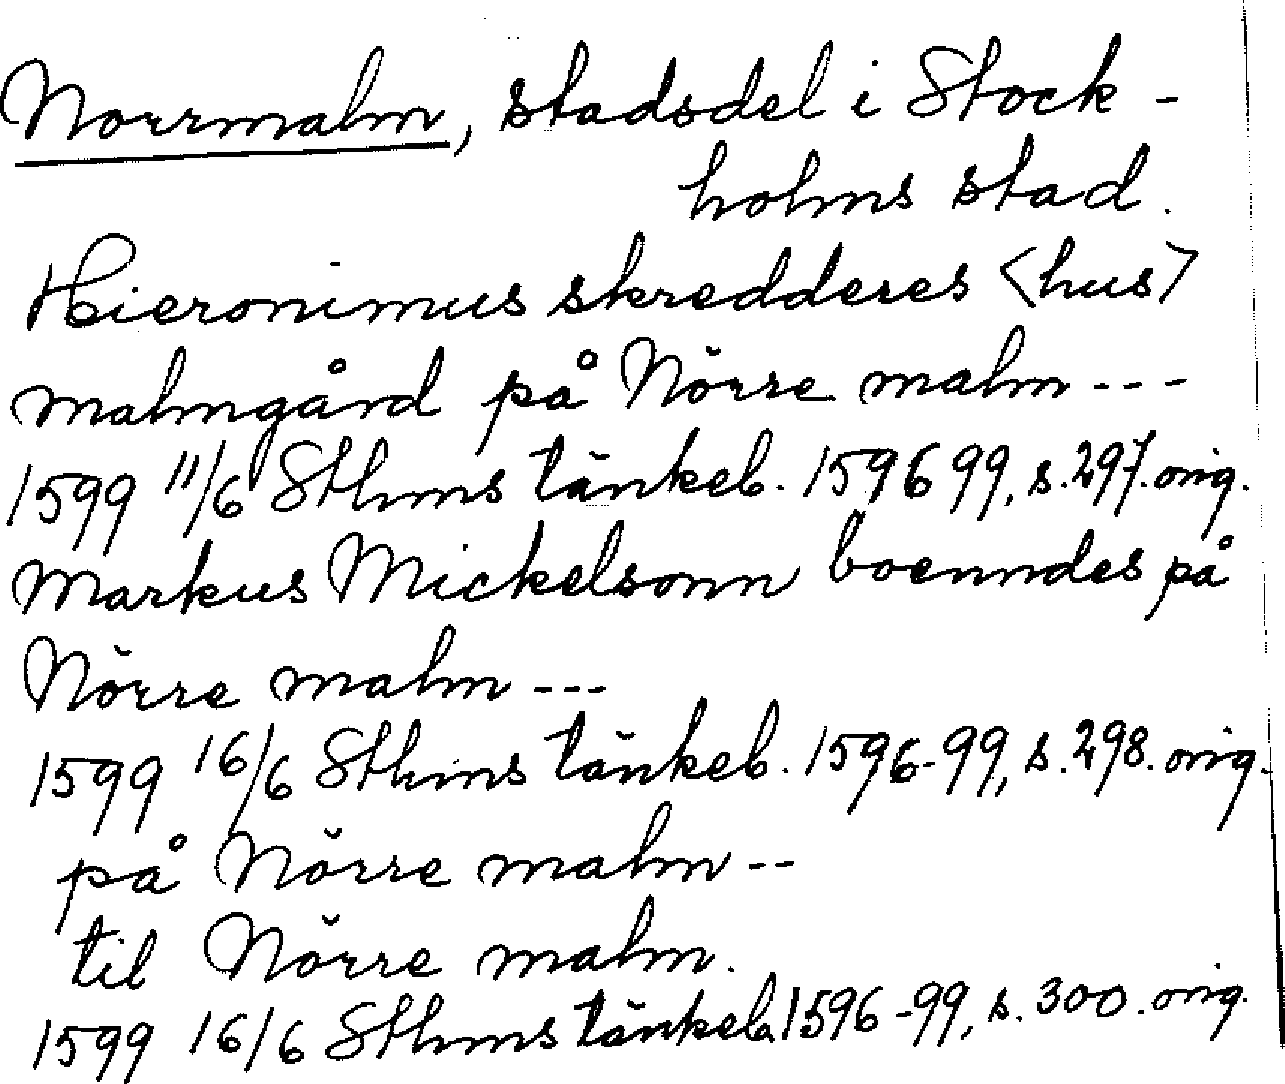 Norrmalm, stadsdel i Stock-
holms stad.
Hieronimus skredderes <hus>
malmgård på Nörre malm---
1599 11/6 Sthms tänkeb. 1596 99, s. 297. orig.
Markus Mickelsonn boenndes på
Nörre malm---
1599 16/6 Sthms tänkeb. 1596-99, s. 298. orig.
på Nörre malm--
til Nörre malm.
1599 16/6 Sthms tänkeb. 1596-99, s. 300. orig.